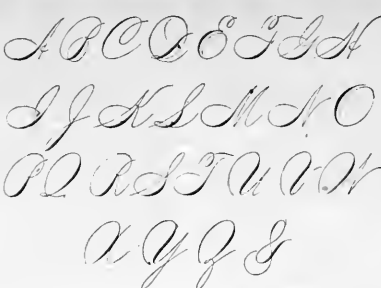 A B C D E F G H
I J K L M N O
P Q R S T U V W
X Y Z &